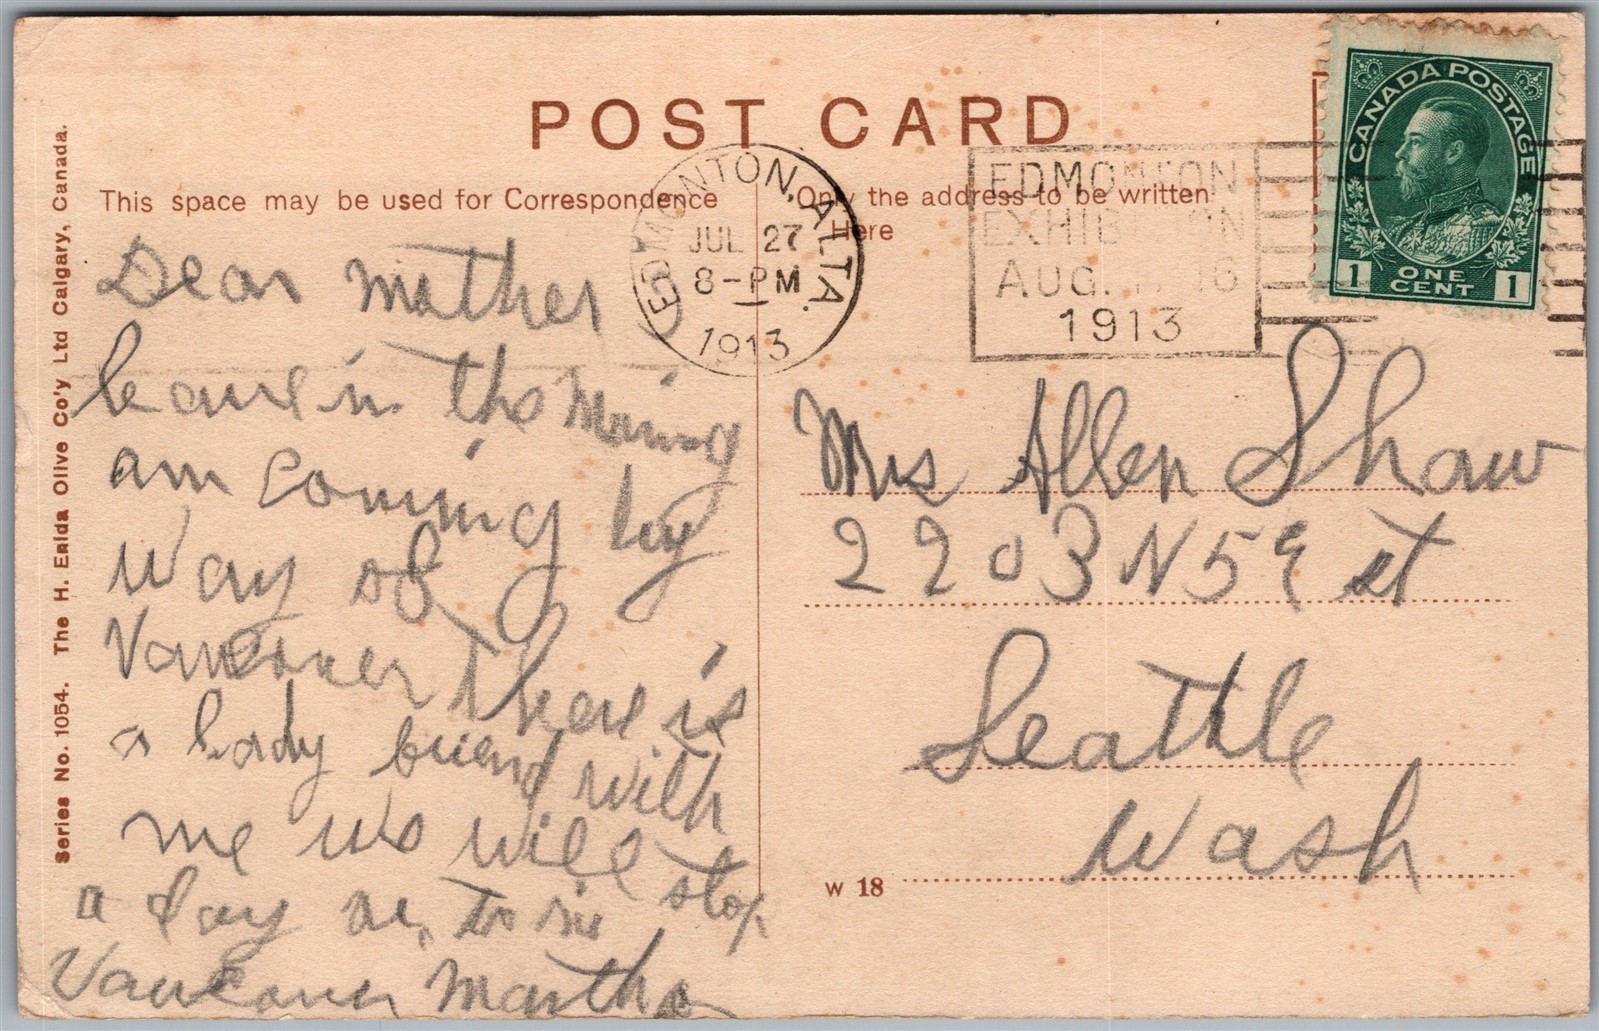 POST CARD
This space may be used for Correspondence
Only the address to be written
Here
EDMONTON, ALTA.
JUL 27
8-PM
1913
EDMONTON
EXHIB ON
AUG. 16
1913
CANADA POSTAGE
1 ONE CENT 1
Dear Mother
leave in the Morning
am coming by
way of
Vancouver There is
a lady friend with
me We will stop
a day or to in
Vancouver Martha
Mrs Allen Shaw
2203 N 59 st
Seattle
Wash
W 18
Series No. 1054. The H. Enida Olive Co'y Ltd Calgary, Canada.